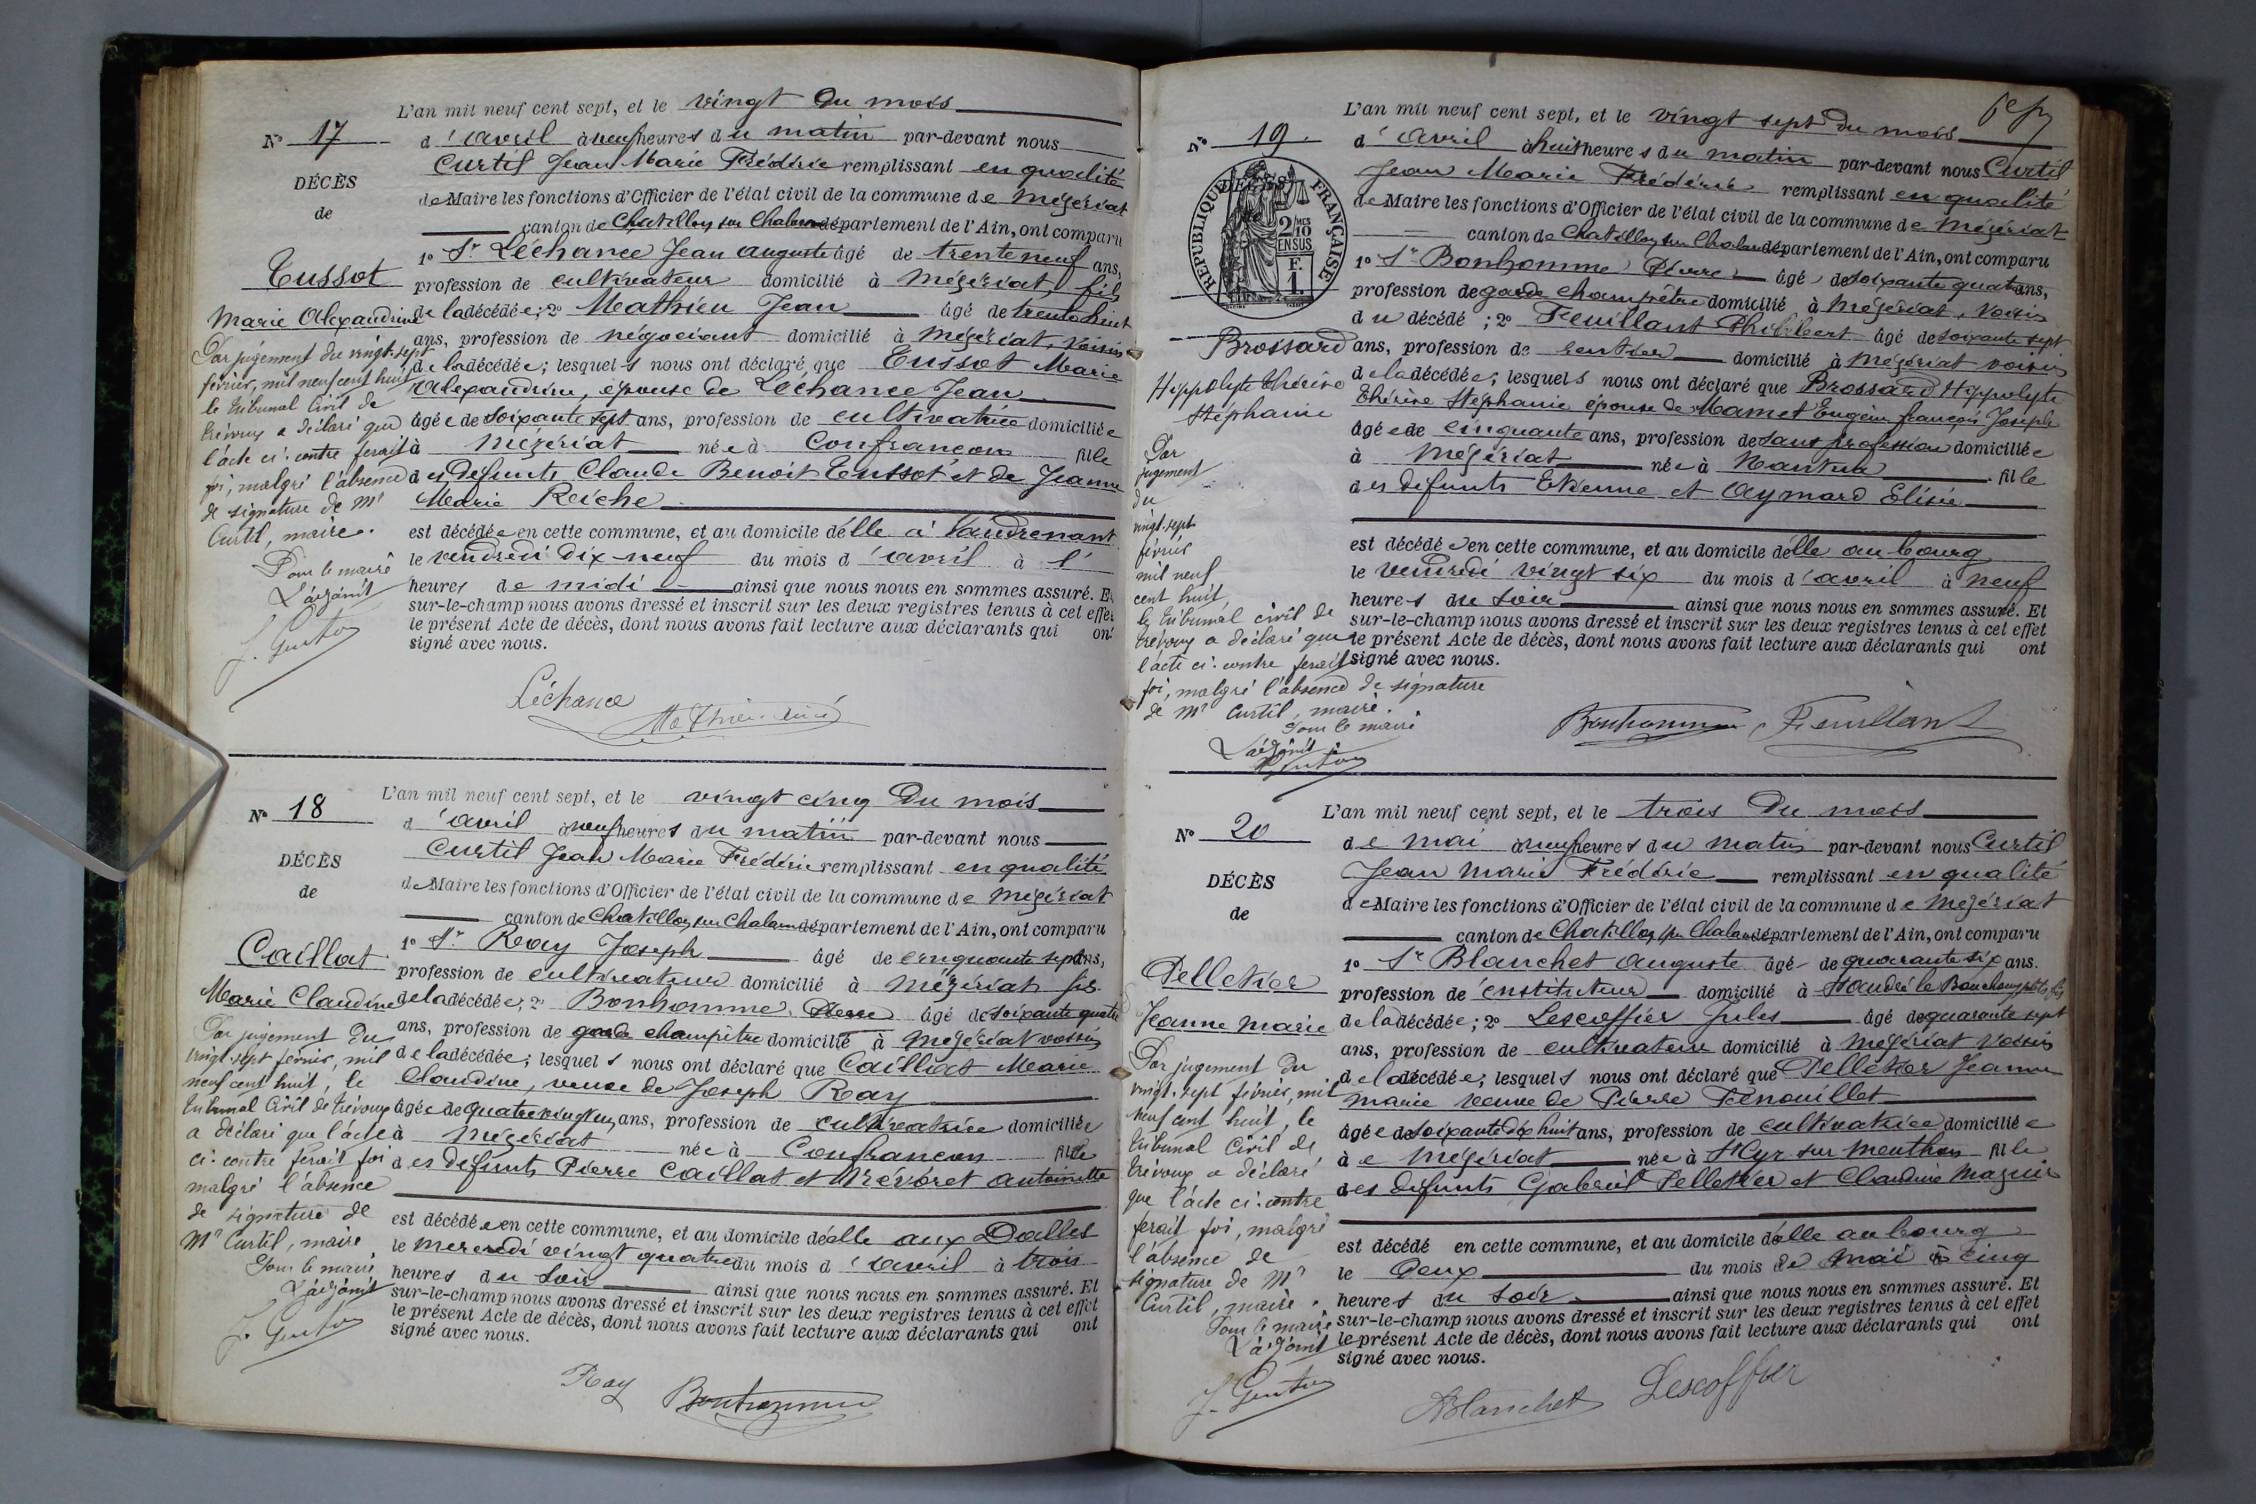 L'an mil neuf cent sept, et le vingt du mois
N° 17
d'avril à neuf heures du matin par-devant nous
Curtil Jean Marie Frédéric remplissant en qualité
DÉCÈS
de Maire les fonctions d'Officier de l'état civil de la commune de Mézériat
de
canton de Chatillon sur Chalaronne département de l'Ain, ont comparu
1° Sr Léchance Jean Auguste âgé de trente neuf ans,
Tussot
profession de cultivateur domicilié à Mézériat, fils
Marie Alexandrine
de la décédée; 2° Mathieu Jean âgé de trente huit
ans, profession de négociant domicilié à Mézériat, voisin
de la décédée; lesquels nous ont déclaré que Tussot Marie
Alexandrine, épouse de Léchance Jean
âgée de soixante sept ans, profession de cultivatrice domiciliée
à Mézériat née à Confrançon fille
des defunts Claude Benoit Tussot et de Jeanne
Marie Reiche
est décédée en cette commune, et au domicile d'elle à Vaudrenant
le vendredi dix neuf du mois d'avril à l'
heures de midi ainsi que nous nous en sommes assuré. Et
sur-le-champ nous avons dressé et inscrit sur les deux registres tenus à cet effet
le présent Acte de décès, dont nous avons fait lecture aux déclarants qui ont
signé avec nous.
Par jugement du vingt-sept
février, mil neuf cent huit
le tribunal Civil de
Trévoux a déclaré que
l'acte ci-contre ferait
foi, malgré l'absence
de signature de Mr
Curtil, maire.
Pour le maire
L'adjoint
Léchance
L'an mil neuf cent sept, et le vingt cinq du mois
N° 18
d'avril à neuf heures du matin par-devant nous
Curtil Jean Marie Frédéric remplissant en qualité
DÉCÈS
de Maire les fonctions d'Officier de l'état civil de la commune de Mézériat
de
canton de Chatillon sur Chalaronne département de l'Ain, ont comparu
1° Sr Ray Joseph âgé de cinquante sept ans,
Caillat
profession de cultivateur domicilié à Mézériat fils
Marie Claudine
de la décédée; 2° Bonhomme Pierre âgé de soixante quatre
ans, profession de garde champêtre domicilié à Mézériat voisin
de la décédée; lesquels nous ont déclaré que Caillat Marie
Claudine, veuve de Joseph Ray
âgée de quatre vingt un ans, profession de cultivatrice domiciliée
à Mézériat née à Confrançon fille
des defunts Pierre Caillat et Prévoret Antoinette
est décédée en cette commune, et au domicile d'elle aux Dalles
le mercredi vingt quatre du mois d'avril à trois
heures du soir ainsi que nous nous en sommes assuré. Et
sur-le-champ nous avons dressé et inscrit sur les deux registres tenus à cet effet
le présent Acte de décès, dont nous avons fait lecture aux déclarants qui ont
signé avec nous.
Par jugement du
vingt-sept février, mil
neuf cent huit, le
tribunal Civil de Trévoux
a déclaré que l'acte
ci-contre ferait foi
malgré l'absence
de signature de
Mr Curtil, maire
Pour le maire
L'adjoint
Ray Bonhomme
L'an mil neuf cent sept, et le vingt sept du mois
N° 19
d'avril à huit heures du matin par-devant nous Curtil
Jean Marie Frédéric remplissant en qualité
RÉPUBLIQUE FRANÇAISE
2/10 EN SUS
F. 1.
de Maire les fonctions d'Officier de l'état civil de la commune de Mézériat
canton de Chatillon sur Chalaronne département de l'Ain, ont comparu
1° Sr Bonhomme Pierre âgé de soixante quatre ans,
profession de garde champêtre domicilié à Mézériat, voisin
du décédé; 2° Feuillant Philibert âgé de soixante sept
Brossard
ans, profession de rentier domicilié à Mézériat voisin
Hippolyte Thérèse
Stéphanie
de la décédée; lesquels nous ont déclaré que Brossard Hippolyte
Thérèse Stéphanie épouse de Mamet Eugène françois Joseph
âgée de cinquante ans, profession de sans profession domiciliée
à Mézériat née à Nantua fille
des defunts Etienne et Aymard Elisée
est décédée en cette commune, et au domicile d'elle au bourg
le vendredi vingt six du mois d'avril à neuf
heures du soir ainsi que nous nous en sommes assuré. Et
sur-le-champ nous avons dressé et inscrit sur les deux registres tenus à cet effet
le présent Acte de décès, dont nous avons fait lecture aux déclarants qui ont
signé avec nous.
Par
jugement
du
vingt-sept
février
mil neuf
cent huit
le tribunal civil de
Trévoux a déclaré que
l'acte ci-contre ferait
foi, malgré l'absence de signature
de Mr Curtil, maire.
Pour le maire
L'adjoint
Bonhomme Feuillant
L'an mil neuf cent sept, et le trois du mois
N° 20
de mai à neuf heures du matin par-devant nous Curtil
Jean Marie Frédéric remplissant en qualité
DÉCÈS
de Maire les fonctions d'Officier de l'état civil de la commune de Mézériat
de
canton de Chatillon sur Chalaronne département de l'Ain, ont comparu
1° Sr Blanchet Auguste âgé de quarante six ans.
Pelletier
profession de instituteur domicilié à St André le Bouchoux petit fils
Jeanne Marie
de la décédée; 2° Lescoffier Jules âgé de quarante sept
ans, profession de cultivateur domicilié à Mézériat voisin
de la décédée; lesquels nous ont déclaré que Pelletier Jeanne
Marie veuve de Pierre Fenouillet
âgée de soixante dix huit ans, profession de cultivatrice domiciliée
à Mézériat née à St Cyr sur Menthon fille
des defunts Gabriel Pelletier et Claudine Maguin
est décédé en cette commune, et au domicile d'elle au bourg
le deux du mois de mai à cinq
heures du soir ainsi que nous nous en sommes assuré. Et
sur-le-champ nous avons dressé et inscrit sur les deux registres tenus à cet effet
le présent Acte de décès, dont nous avons fait lecture aux déclarants qui ont
signé avec nous.
Par jugement du
vingt-sept février, mil
neuf cent huit, le
tribunal Civil de
Trévoux a déclaré
que l'acte ci-contre
ferait foi, malgré
l'absence de
signature de Mr
Curtil, maire.
Pour le maire
L'adjoint
Blanchet Lescoffier